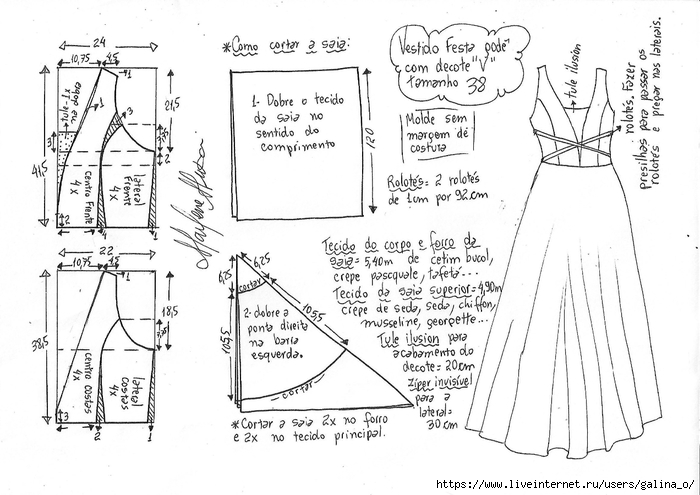 24
10,75
4,5
1
1
3
21,5
3
2
41,5
tule 1x
na dobra
centro frente
4x
lateral
frente
4x
2
4
1
22
10,75
4,5
1
18,5
38,5
centro costas
4x
lateral
costas
4x
3
2
1
*Como cortar a saia:
1- Dobre o tecido
da saia no
sentido do
comprimento
120
6,25
6,25
cortar
105,5
105,5
2- dobre a
ponta direita
na barra
esquerda.
cortar
*Cortar a saia 2x no forro
e 2x no tecido principal.
Vestido Festa pode
com decote "V"
tamanho 38
Molde sem
margem de
costura
Rolotês = 2 rolotês
de 1cm por 92cm
Tecido do corpo e forro da
saia = 5,40m de cetim bucol,
crepe pasquale, tafetá...
Tecido da saia superior = 4,90m
crepe de seda, seda, chiffon,
musseline, georgette...
Tule ilusion para
acabamento do
decote = 20cm
Zíper invisível
para a
lateral =
30cm
tule ilusion
rolotês. Fazer
presilhas para passar os
rolotês e pregar nas laterais.
https://www.liveinternet.ru/users/galina_o/